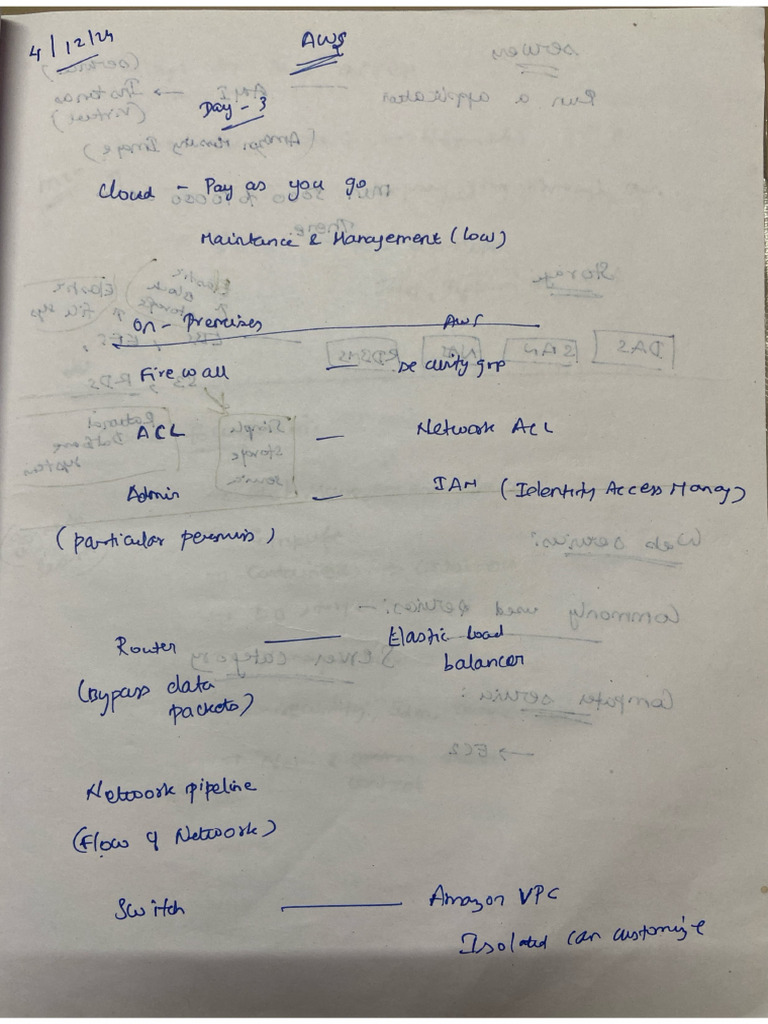 4/12/24
AWS
Day - 3
Cloud - Pay as you go
Maintance & Management (low)
On - Premises AWS
Firewall — Security grp
ACL — Network ACL
Admin — IAM (Identity Access Manag)
(particular permis)
Router — Elastic Load
balancer
(Bypass data
packets)
Network pipeline
(Flow of Network)
Switch — Amazon VPC
Isolated can customize